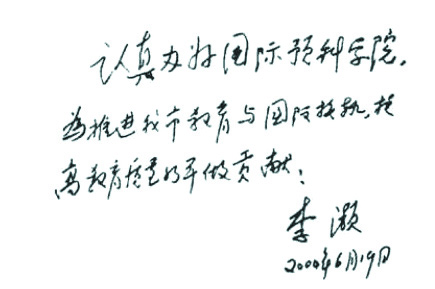 认真办好国际预科学院,
为推进我市教育与国际接轨,提
高教育质量水平做贡献;
李灏
2000年6月19日